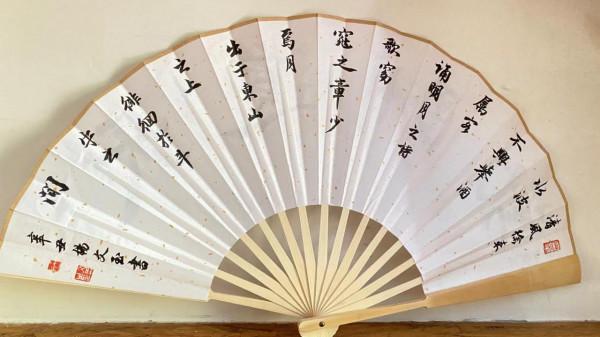 清風徐来
水波
不興舉酒
属客
誦明月之詩
歌窈
窕之章少
焉月
出于東山
之上
徘徊於斗
牛之
间
辛丑楊文玉書